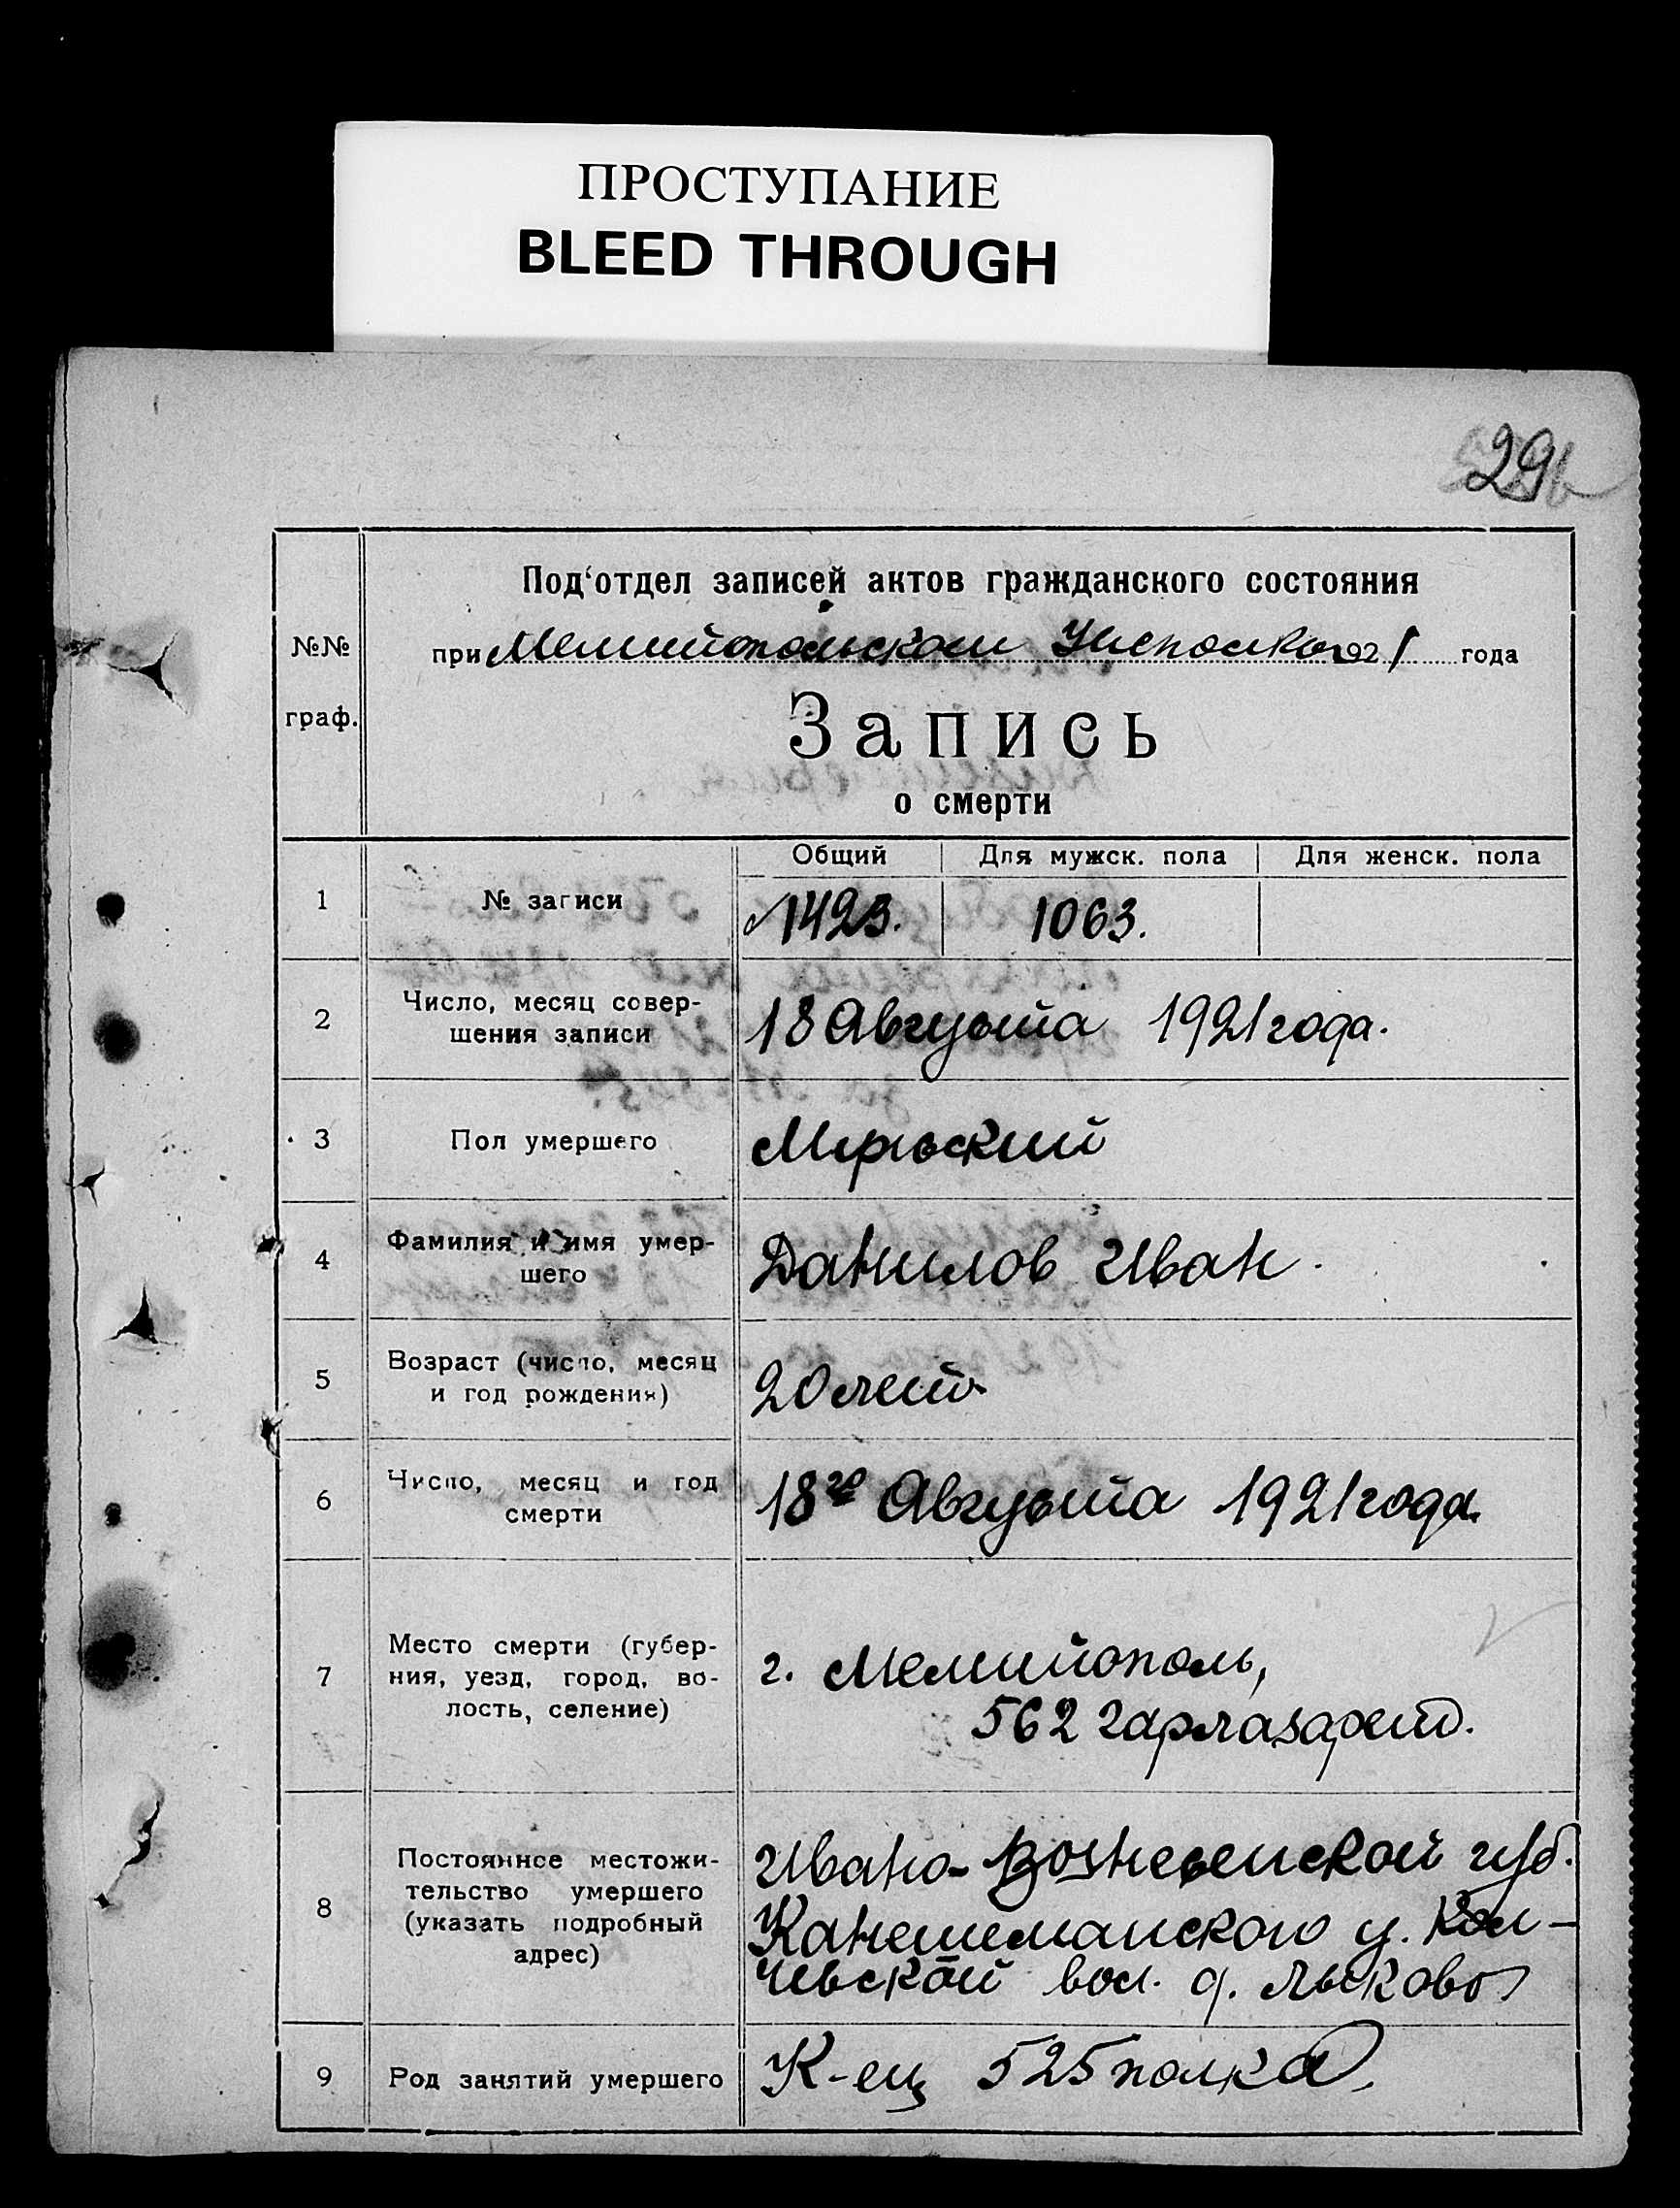 ПРОСТУПАНИЕ
BLEED THROUGH
29
Под‘отдел записей актов гражданского состояния
№№ граф.
при Мелитопольском Уисполкоме 1921 года
Запись
о смерти
Общий Для мужск. пола Для женск. пола
1 № записи 1423. 1063.
2 Число, месяц совер-
шения записи 18 Августа 1921 года.
3 Пол умершего Мужской
4 Фамилия и имя умер-
шего Данилов Иван.
5 Возраст (число, месяц
и год рождения) 20 лет
6 Число, месяц и год
смерти 18го Августа 1921 года.
7 Место смерти (губер-
ния, уезд, город, во-
лость, селение)
г. Мелитополь,
562 гарлазарет.
8 Постоянное местожи-
тельство умершего
(указать подробный
адрес)
Ивано-Вознесенской губ.
у.
вол. д. Лысково
9 Род занятий умершего К-ец 525 полка